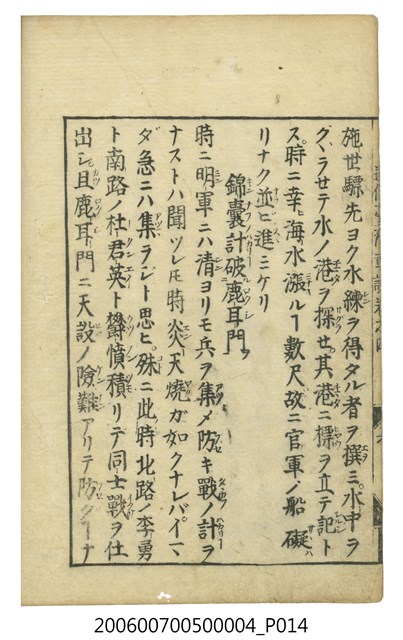 施世驃先ヨク水練ヲ得タル者ヲ撰ミ水中ヲ
グヽラセテ水ノ港ヲ探セ其港ニ標ヲ立テ記ト
ス時ニ幸ヒ海水漲ルー數尺故ニ官軍ノ船礙
リナク並ヒ進ミケリ
錦嚢計破鹿耳門ヲ
時ニ明軍ニハ清ヨリモ兵ヲ集メ防キ戰ノ計ヲ
ナストハ聞ツレモ時炎天燒カ如クナレバイマ
ダ急ニハ集ラジト思ヒ殊ニ此時北路ノ李勇
ト南路ノ杜君英ト欝憤積リテ同士戰ヲ仕
出シ且鹿耳門ニ天設ノ險難アリテ防ダーナ
200600700500004_P014